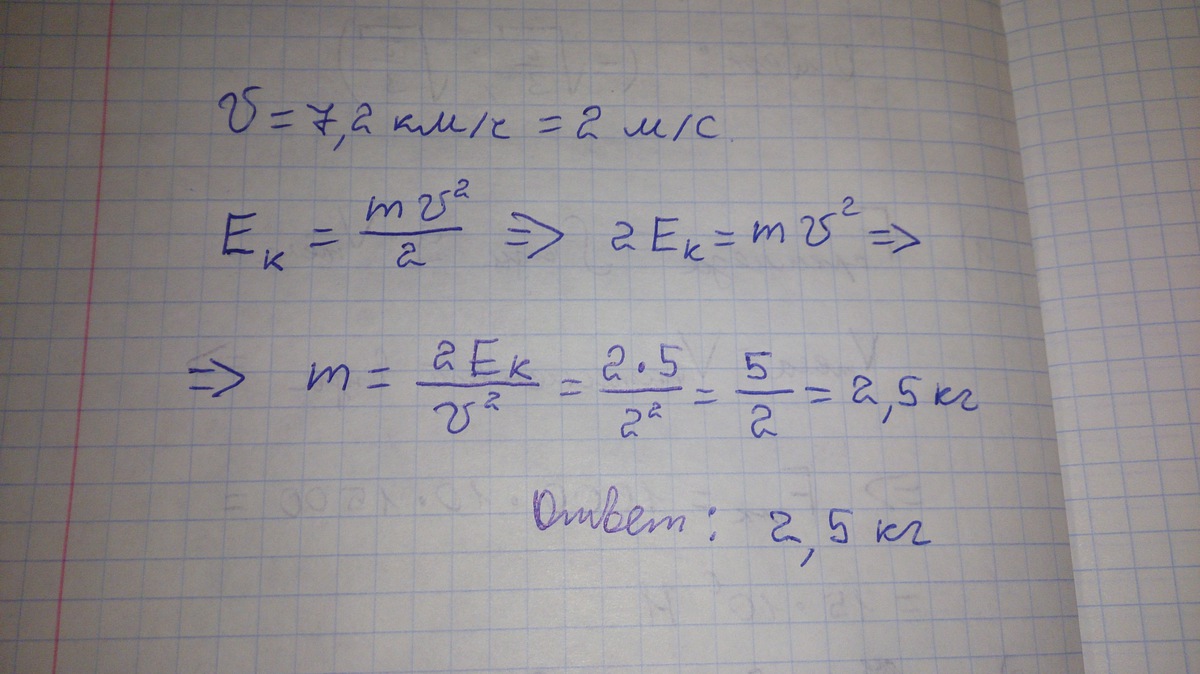 υ = 7,2 км/ч = 2 м/с.
Eк = mυ²/2 ⇒ 2Eк = mυ² ⇒
⇒ m = 2Eк/υ² = 2·5/2² = 5/2 = 2,5 кг
Ответ: 2,5 кг